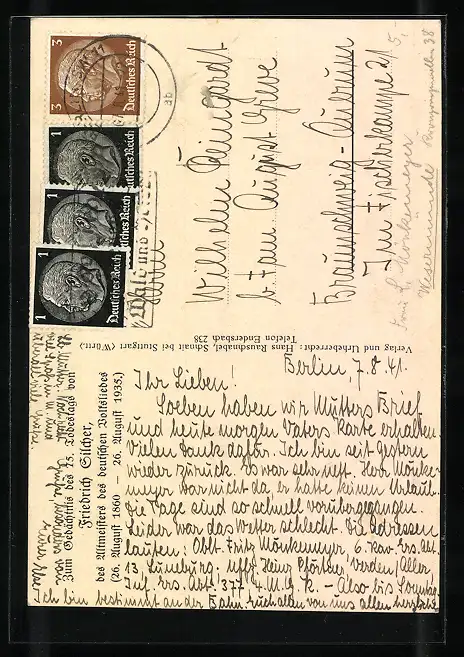 Berlin, 7.8.41.
Ihr Lieben!
Soeben haben wir Mutters Brief
und heute morgen Vaters Karte erhalten.
Vielen Dank dafür. Ich bin seit gestern
wieder zurück. Es war sehr nett. Herr Mönke-
meyer war nicht da, er hatte keinen Urlaub.
Die Tage sind so schnell vorübergegangen.
Leider war das Wetter schlecht. Die Adressen
lauten: Oblt. Fritz Mönkemeyer, 6. Kav. Ers. Abt.
13, Lüneburg. Uffz. Heinz Verden/Aller
Inf. Ers. Abt. 377 4. M.G.K. – Also bis Sonntag,
Ich bin bestimmt an der Bahn. Euch allen von uns allen herzliche
Verlag und Urheberrecht: Hans Rauschnabel, Schnait bei Stuttgart (Württ.)
Telefon Endersbach 238
Zum Gedächtnis des 75. Todestags von
Friedrich Silcher,
des Altmeisters des deutschen Volksliedes
(26. August 1860 — 26. August 1935.)
Wilhelm
b. Fam. August Greve
Braunschweig-
Im Fischerkampe 21
Mönkemeyer
Wesermünde
38
5,-
3 3
Deutsches Reich
1
Deutsches Reich
1
Deutsches Reich
1
Deutsches Reich
ab